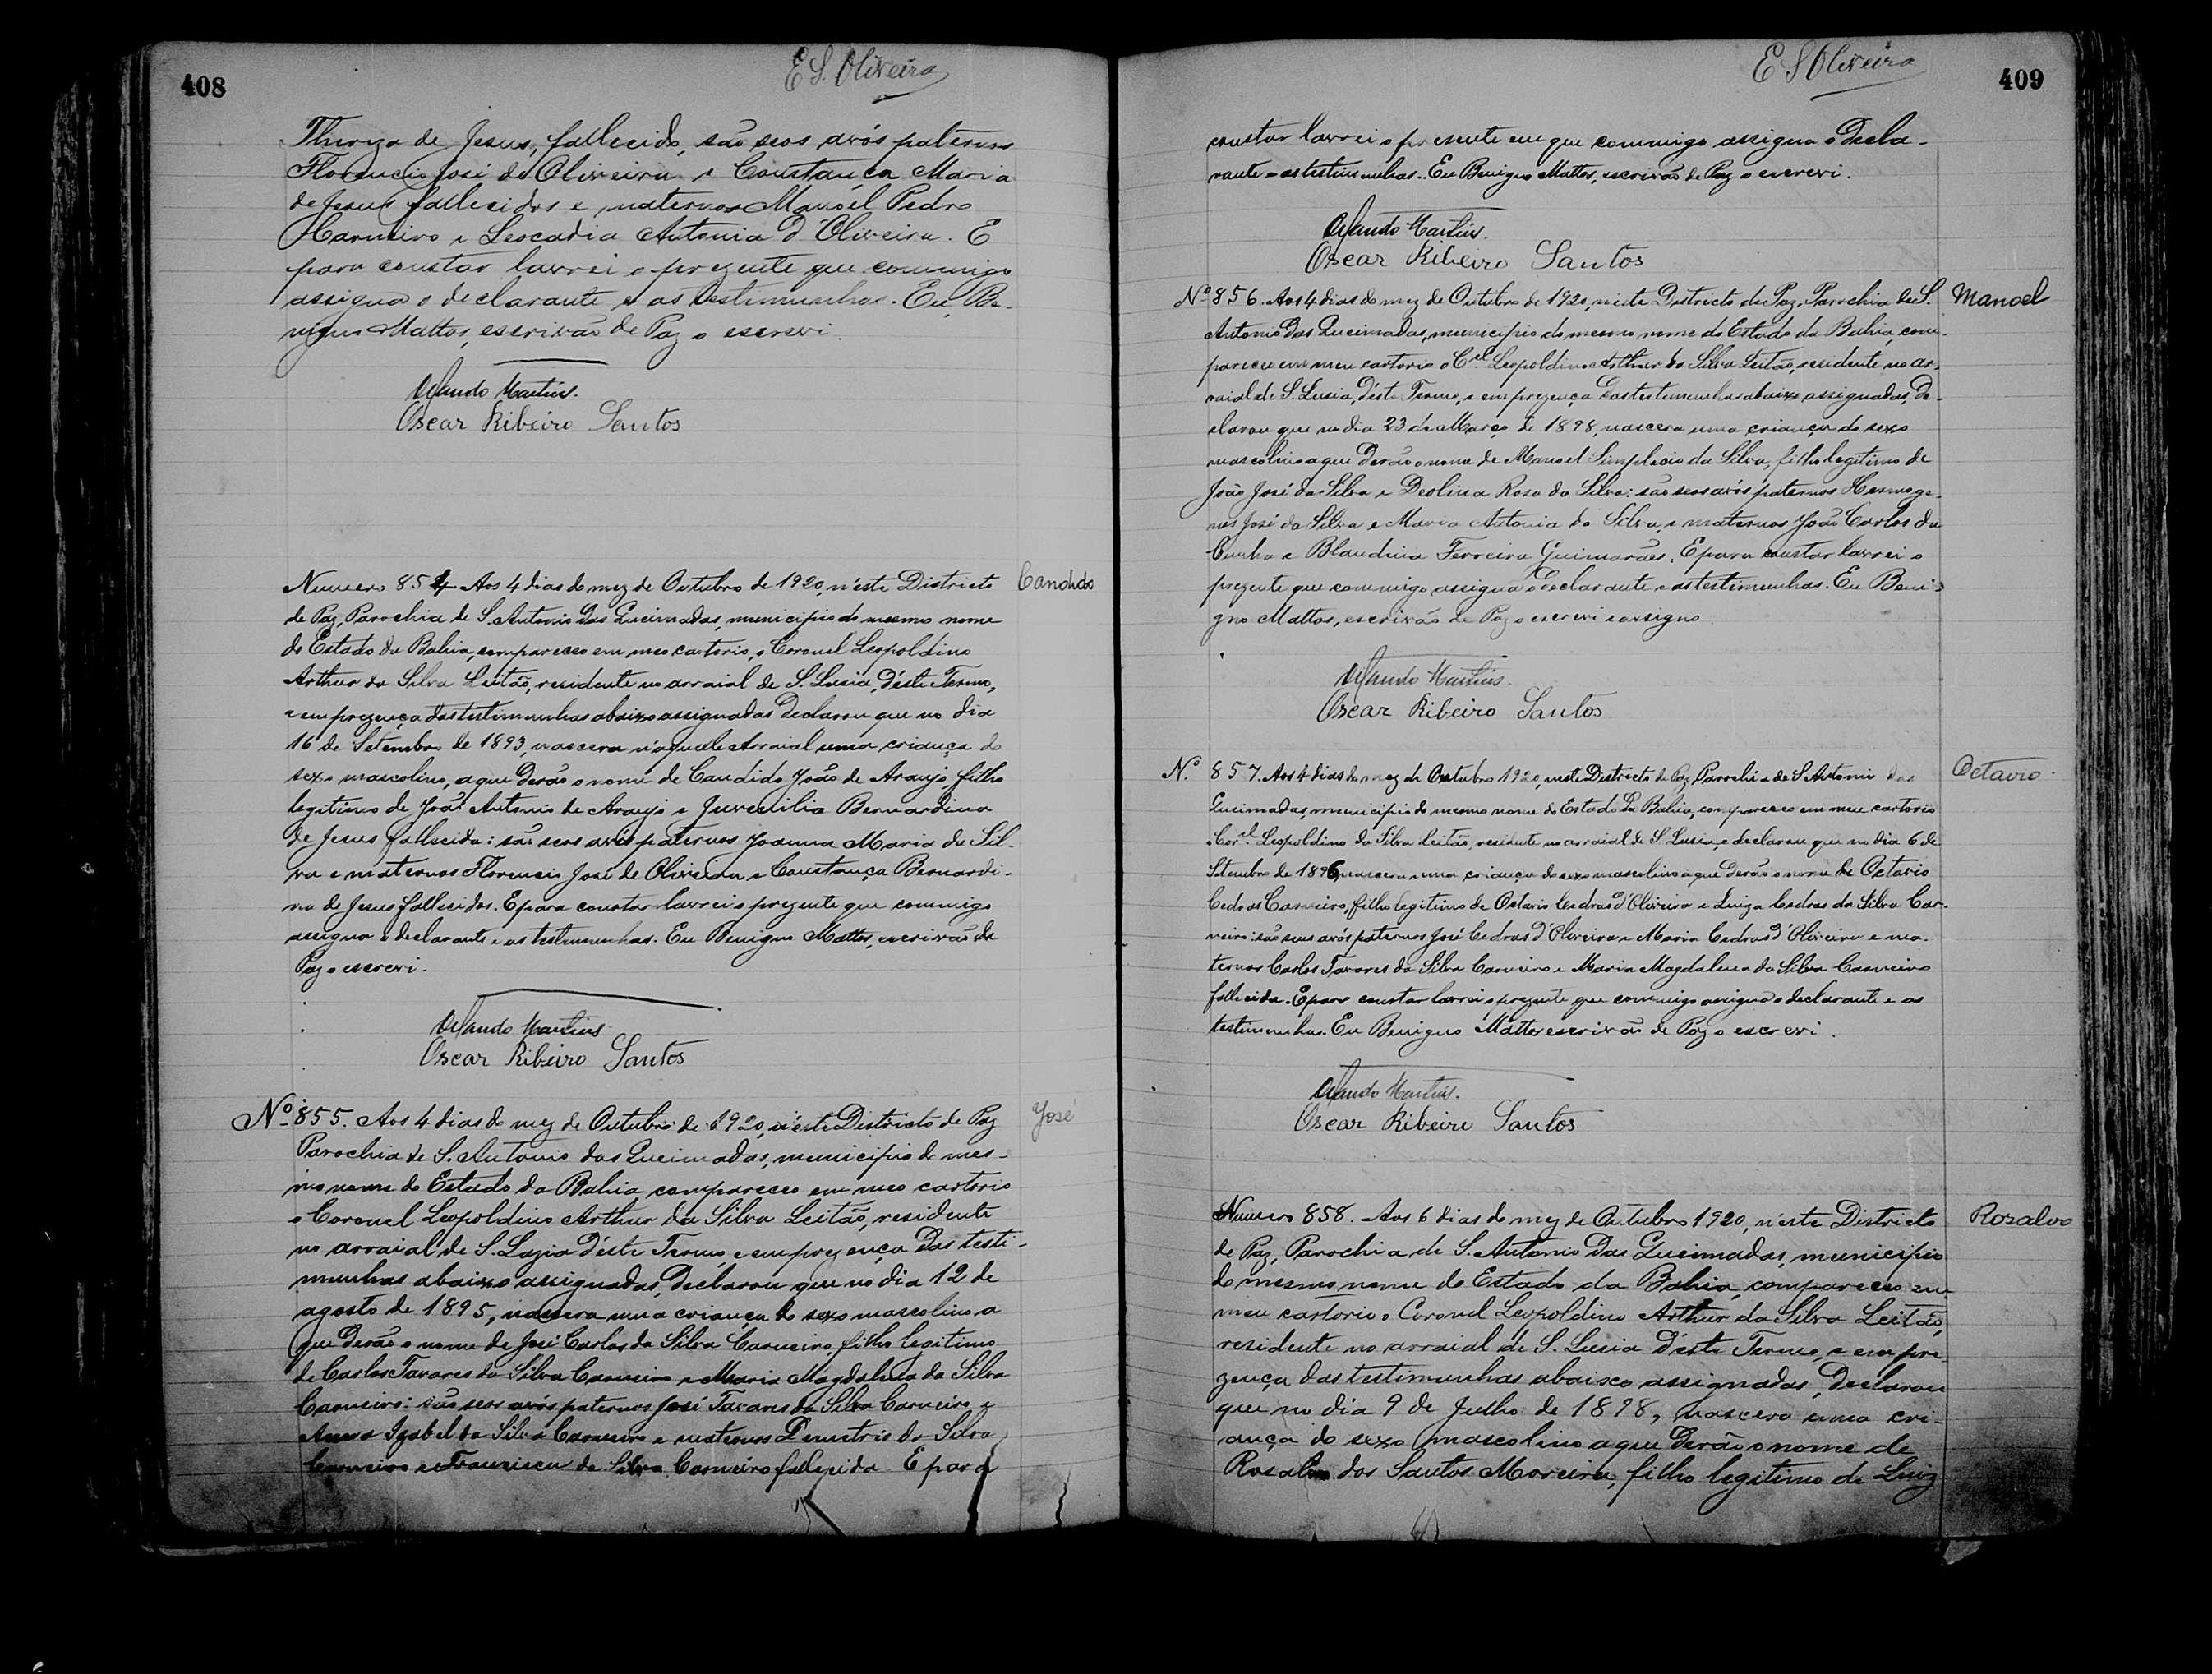 408
E S. Oliveira
Thereza de Jesus, fallecido, são seos avós paternos
Florencio José de Oliveira e Constança Maria
de Jesus fallecidos e maternos Manoel Pedro
Carneiro e Leocadia Antonia d'Oliveira. E
para constar lavrei o prezente que commigo
assigna o declarante e as testimunhas. Eu, Be-
nigno Mattos, escrivão de Paz o escrevi.
Orlando Martins.
Oscar Ribeiro Santos
Candido
Numero 854 Aos 4 dias do mez de Outubro de 1920, n'este Districto
de Paz, Parochia de S. Antonio das Queimadas, municipio do mesmo nome
do Estado da Bahia, compareceo em meo cartorio, o Coronel Leopoldino
Arthur da Silva Leitão, residente no arraial de S. Lusia, d'este Termo,
e em prezença das testimunhas abaixo assignadas declarou que no dia
16 de Setembro de 1893, nascera n'aquele Arraial uma criança do
sexo masculino, a que derão o nome de Candido João de Araujo, filho
legitimo de João Antonio de Araujo e Juvenilia Bernardina
de Jesus fallecida: são seos avós paternos Joanna Maria da Sil-
va e maternos Florencio José de Oliveira e Constança Bernardi-
na de Jesus fallecidos. E para constar lavrei o prezente que commigo
assigna o declarante e as testimunhas. Eu Benigno Mattos, escrivão de
Paz o escrevi.
Orlando Martins
Oscar Ribeiro Santos
José
Nº 855. Aos 4 dias do mez de Outubro de 1920, n'este Districto de Paz
Parochia de S. Antonio das Queimadas, municipio do mes-
mo nome do Estado da Bahia compareceo em meo cartorio
o Coronel Leopoldino Arthur da Silva Leitão, residente
no arraial de S. Luzia d'este Termo, e em prezença das testi-
munhas abaixo assignadas, declarou que no dia 12 de
agosto de 1895, nascera uma criança do sexo mascolino a
que derão o nome de José Carlos da Silva Carneiro, filho legitimo
de Carlos Tavares da Silva Carneiro e Maria Magdalena da Silva
Carneiro: são seos avós paternos José Tavares da Silva Carneiro e
Anna Izabel da Silva Carneiro e maternos Demetrio da Silva
Carneiro e Francisca da Silva Carneiro fallecida E para
E S Oliveira
409
constar lavrei o presente em que commigo assigna o decla-
rante e as testimunhas. Eu Benigno Mattos, escrivão de Paz o escrevi.
Orlando Martins.
Oscar Ribeiro Santos
Manoel
Nº 856. Aos 4 dias do mez de Outubro de 1920, n'este Districto de Paz, Parochia de S.
Antonio das Queimadas, municipio do mesmo nome do Estado da Bahia, com-
pareceu em meu cartorio o Cel Leopoldino Arthur da Silva Leitão, residente no ar-
raial de S. Lusia, d'este Termo, e em prezença das testemunhas abaixo assignadas, de-
clarou que no dia 23 de Março de 1898, nascera uma criança do sexo
mascolino a que derão o nome de Manoel Simplicio da Silva, filho legitimo de
João José da Silva e Deolina Rosa da Silva: são seos avós paternos Hermoge-
nes José da Silva e Maria Antonia da Silva, e maternos João Carlos da
Cunha e Blandina Ferreira Guimarães. E para constar lavrei o
prezente que commigo assigna o declarante e as testimunhas. Eu Beni-
gno Mattos, escrivão de Paz o escrevi e assigno
Orlando Martins.
Oscar Ribeiro Santos
Octavio.
Nº 857. Aos 4 dias do mez de Outubro 1920, neste Districto de Paz, Parochia de S. Antonio das
Queimadas, municipio do mesmo nome do Estado da Bahia, compareceo em meu cartorio
o Corel Leopoldino da Silva Leitão, residente no arraial de S. Lusia, e declarou que no dia 6 de
Setembro de 1896, nascera uma criança do sexo masculino a que derão o nome de Octavio
Cedras Carneiro, filho legitimo de Octavio Cedras d'Oliveira e Luiza Cedras da Silva Car-
neiro: são seus avós paternos José Cedras d'Oliveira e Maria Cedras d'Oliveira e ma-
ternos Carlos Tavares da Silva Carneiro e Maria Magdalena da Silva Carneiro
fallecida. E para constar lavrei o prezente que commigo assigna o declarante e as
testimunhas. Eu Benigno Mattos escrivão de Paz o escrevi.
Orlando Martins.
Oscar Ribeiro Santos
Rosalvo
Numero 858. Aos 6 dias do mez de Outubro 1920, n'este Districto
de Paz, Parochia de S. Antonio das Queimadas, municipio
do mesmo nome do Estado da Bahia, compareceo em
meu cartorio o Coronel Leopoldino Arthur da Silva Leitão,
residente no arraial de S. Lusia d'este Termo, e em pre-
zença das testimunhas abaixo assignadas, declarou
que no dia 9 de Julho de 1898, nascera uma cri-
ança do sexo mascolino a que derão o nome de
Rosalvo dos Santos Moreira, filho legitimo de Luiz